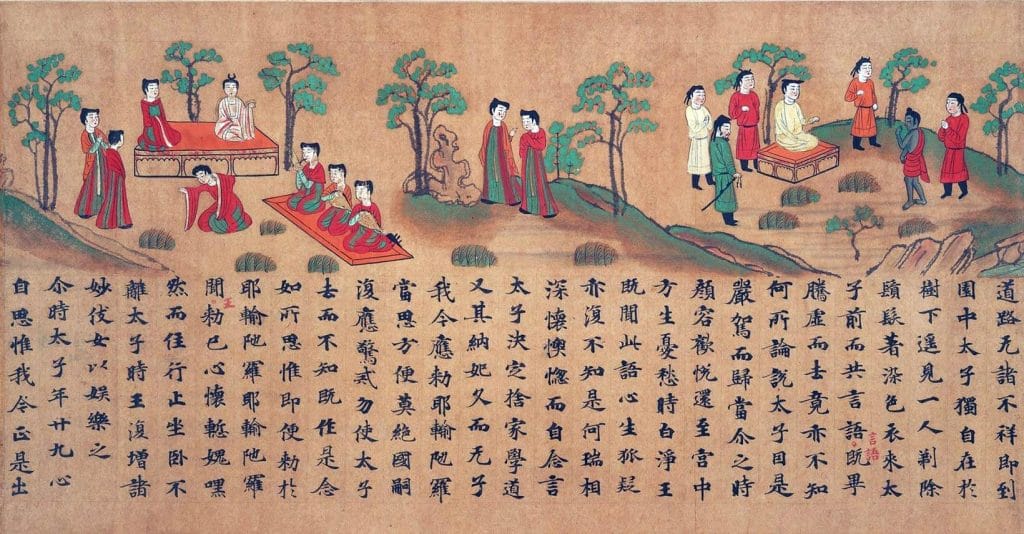 道路无諸不祥即到
園中太子獨自在於
樹下遥見一人剃除
鬚髮著染色衣來太
子前而共言語既畢
言語
騰虛而去竟亦不知
何所論說太子因是
嚴駕而歸當尒之時
顏容歡悅還至宮中
方生憂愁時白淨王
既聞此語心生狐疑
亦復不知是何瑞相
深懷懊惚而自念言
太子決定捨家學道
又其納妃久而无子
我今應勅耶輸陁羅
當思方便莫絕國嗣
復應驚貳勿使太子
去而不知既作是念
如所思惟即便勅於
耶輸陁羅耶輸陁羅
聞王勅已心懷慙愧嘿
然而住行止坐卧不
離太子時王復增諸
妙伎女以娛樂之
尒時太子年廿九心
自思惟我今正是出